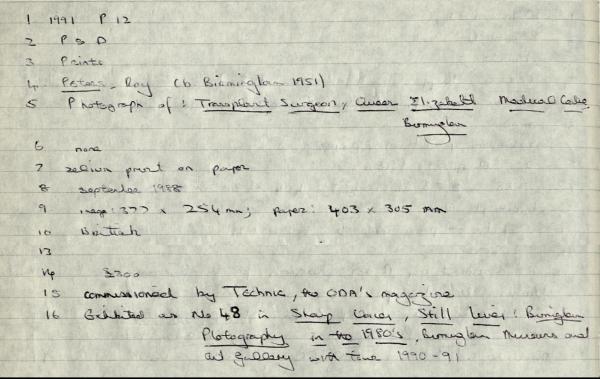 1 1991 P 12
2 P & D
3 Prints
4 Peters, Roy (b. Birmingham 1951)
5 Photograph of: Transplant Surgeon, Queen Elizabeth Medical Centre
Birmingham
6 none
7 print on paper
8 September 1988
9 image: 377 x 254 mm; paper: 403 x 305 mm
10 British
13
14 £300
15 commissioned by Technic, the ODA's magazine
16 Exhibited as No 48 in Sharp Voices, Still Lives: Birmingham
Photography in the 1980's, Birmingham Museums and
Art Gallery with tour 1990-91